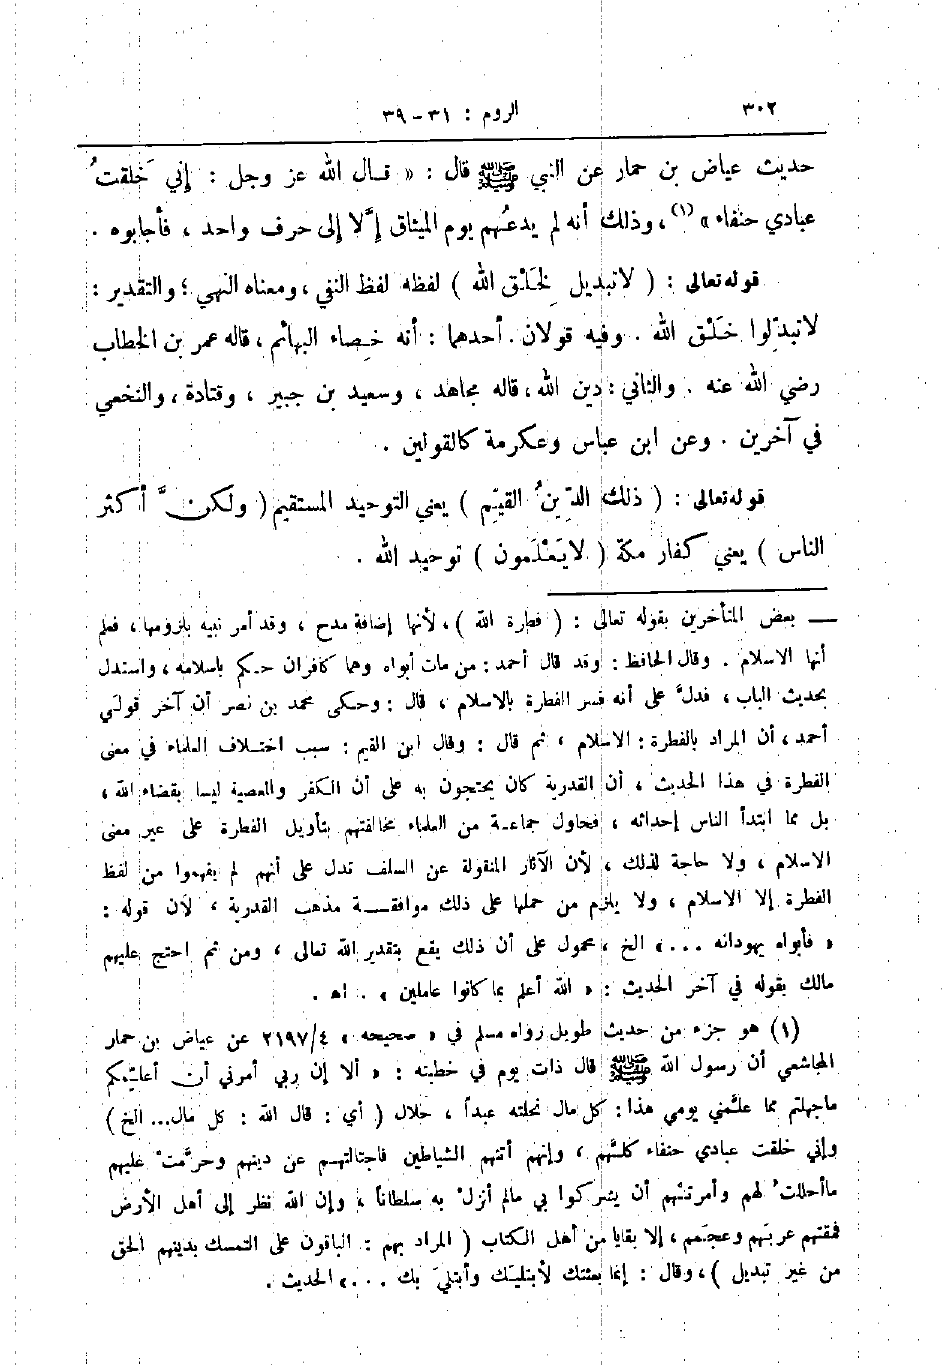 ٣٠٢ الروم : ٣١-٣٩
حديث عياض بن حمار عن النبي ﷺ قال : « قـال الله عز وجل : إني خَلقتُ
عبادي حنفاء » (١) ، وذلك أنه لم يدعُهم يوم الميثاق إلَّا إلى حرف واحد ، فأجابوه .
قوله تعالى : ( لا تبديل لِخَلْق الله ) لفظه لفظ النفي ، ومعناه النهي ؛ والتقدير :
لا تبدِّلوا خَلْق الله . وفيه قولان . أحدهما : أنه خِصاء البهائم ، قاله عمر بن الخطاب
رضي الله عنه . والثاني : دين الله ، قاله مجاهد ، وسعيد بن جبير ، وقتادة ، والنخعي
في آخرين . وعن ابن عباس وعكرمة كالقولين .
قوله تعالى : ( ذلك الدِّينُ القيِّم ) يعني التوحيد المستقيم ( ولكنَّ أكثر
الناس ) يعني كفار مكة ( لا يَعْلَمون ) توحيد الله .
ـــ بعض المتأخرين بقوله تعالى : ( فطرة الله ) ، لأنها إضافة مدح ، وقد أمر نبيه بلزومها ، فعلم
أنها الاسلام . وقال الحافظ : وقد قال أحمد : من مات أبواه وهما كافران حـكم باسلامه ، واستدل
بحديث الباب ، فدلَّ على أنه فسر الفطرة بالاسلام ، قال : وحـكى محمد بن نصر أن آخر قولَي
أحمد ، أن المراد بالفطرة : الاسلام ، ثم قال : وقال ابن القيم : سبب اختـلاف العلماء في معنى
الفطرة في هذا الحديث ، أن القدرية كان يحتجون به على أن الكفر والمعصية ليسا بقضاء الله ،
بل مما ابتدأ الناس إحداثه ، فحاول جماعـة من العلماء مخالفتهم بتأويل الفطرة على غير معنى
الاسلام ، ولا حاجة لذلك ، لأن الآثار المنقولة عن السلف تدل على أنهم لم يفهموا من لفظ
الفطرة إلا الاسلام ، ولا يلزم من حملها على ذلك موافقـــة مذهب القدرية ، لأن قوله :
« فأبواه يهودانه ... » الخ ، محمول على أن ذلك يقع بتقدير الله تعالى ، ومن ثم احتج عليهم
مالك بقوله في آخر الحديث : « الله أعلم بما كانوا عاملين » . اه .
(١) هو جزء من حديث طويل رواه مسلم في « صحيحه » ٢١٩٧/٤ عن عياض بن حمار
المجاشعي أن رسول الله ﷺ قال ذات يوم في خطبته : « ألا إن ربي أمرني أن أعلِّمكم
ما جهلتم مما علَّمني يومي هذا : كل مال نحلته عبداً ، حلال ( أي : قال الله : كل مال... الخ )
وإني خلقت عبادي حنفاء كلَّهم ، وإنهم أتتهم الشياطين فاجتالتهـم عن دينهم وحرَّمتْ عليهم
ما أحللتُ لهم وأمرتهْم أن يشركوا بي مالم أنزلْ به سلطاناً ، وإن الله نظر إلى أهل الأرض
فمقتهم عربَهم وعجمَهم ، إلا بقايا من أهل الكتاب ( المراد بهم : الباقون على التمسك بدينهم الحق
من غير تبديل ) ، وقال : إنما بعثتك لأبتليَـك وأبتليَ بك ... » الحديث .